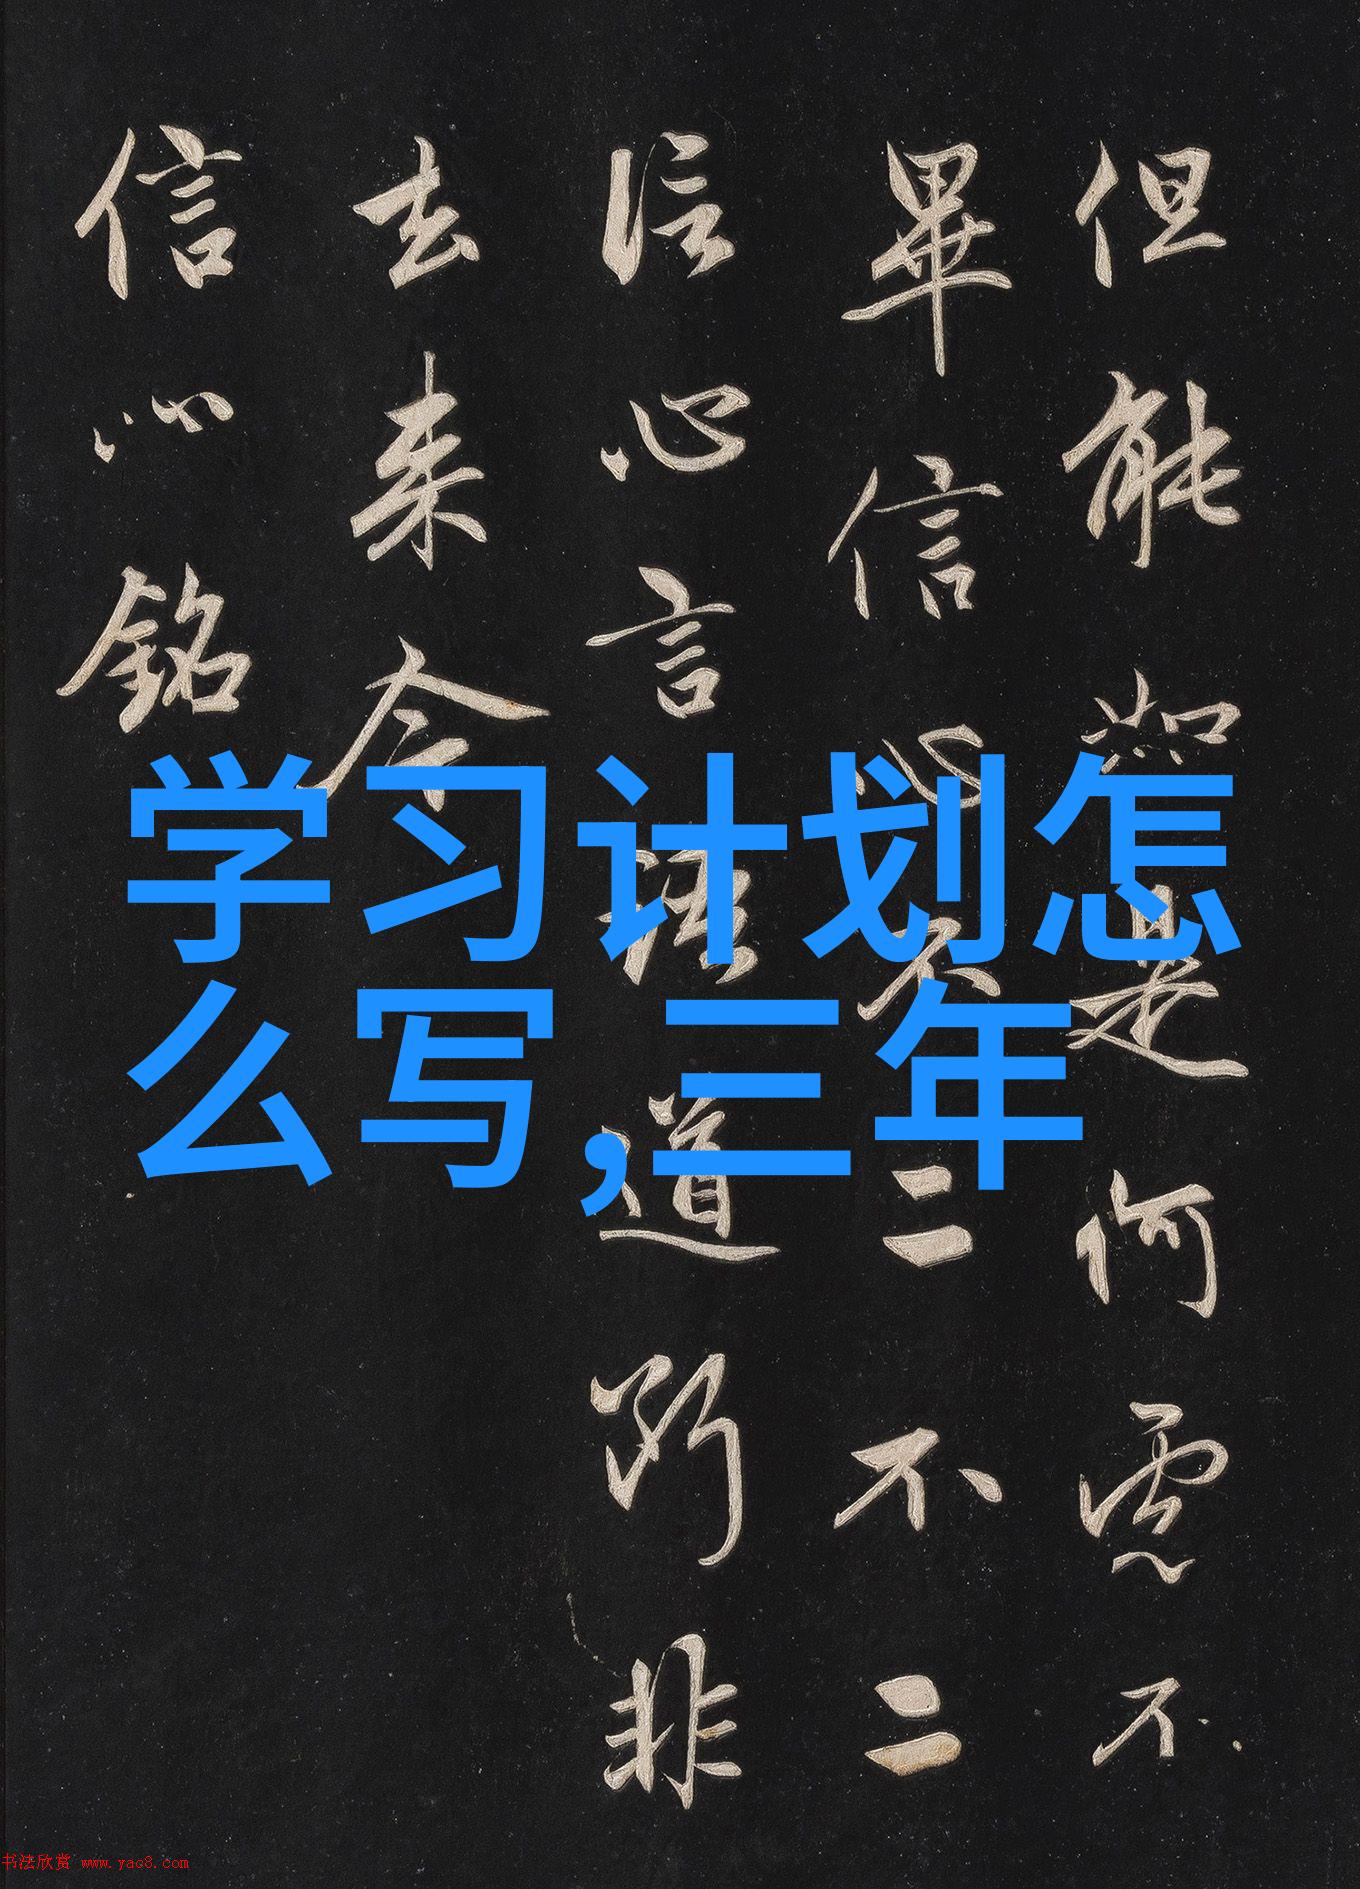 但能如是何慮不
畢信心不二不二
信心言語道斷非
去來今
信心銘
学习计划怎
么写,三年
书法欣赏 www.yac8.com